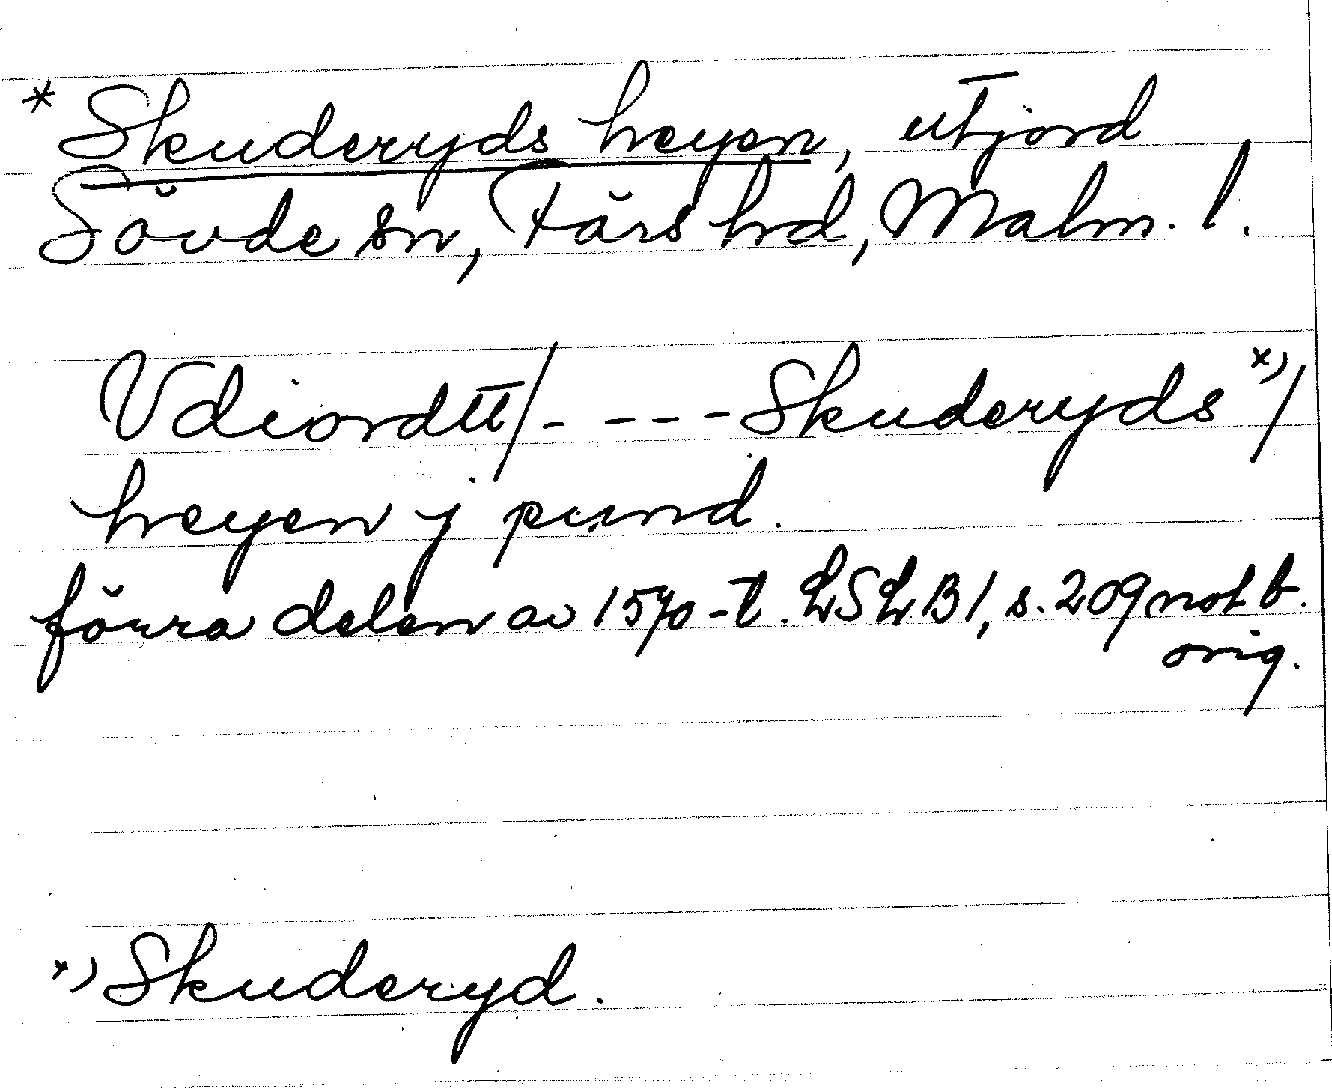 * Skuderyds heyen, utjord
Sövde sn, Färs hd, Malm. l.
Vdiordtt/- - - - -Skuderyds *)/
heyen j pund.
förra delen av 1570-t. LSLB1, s. 209 not b.
orig.
*) Skuderyd.